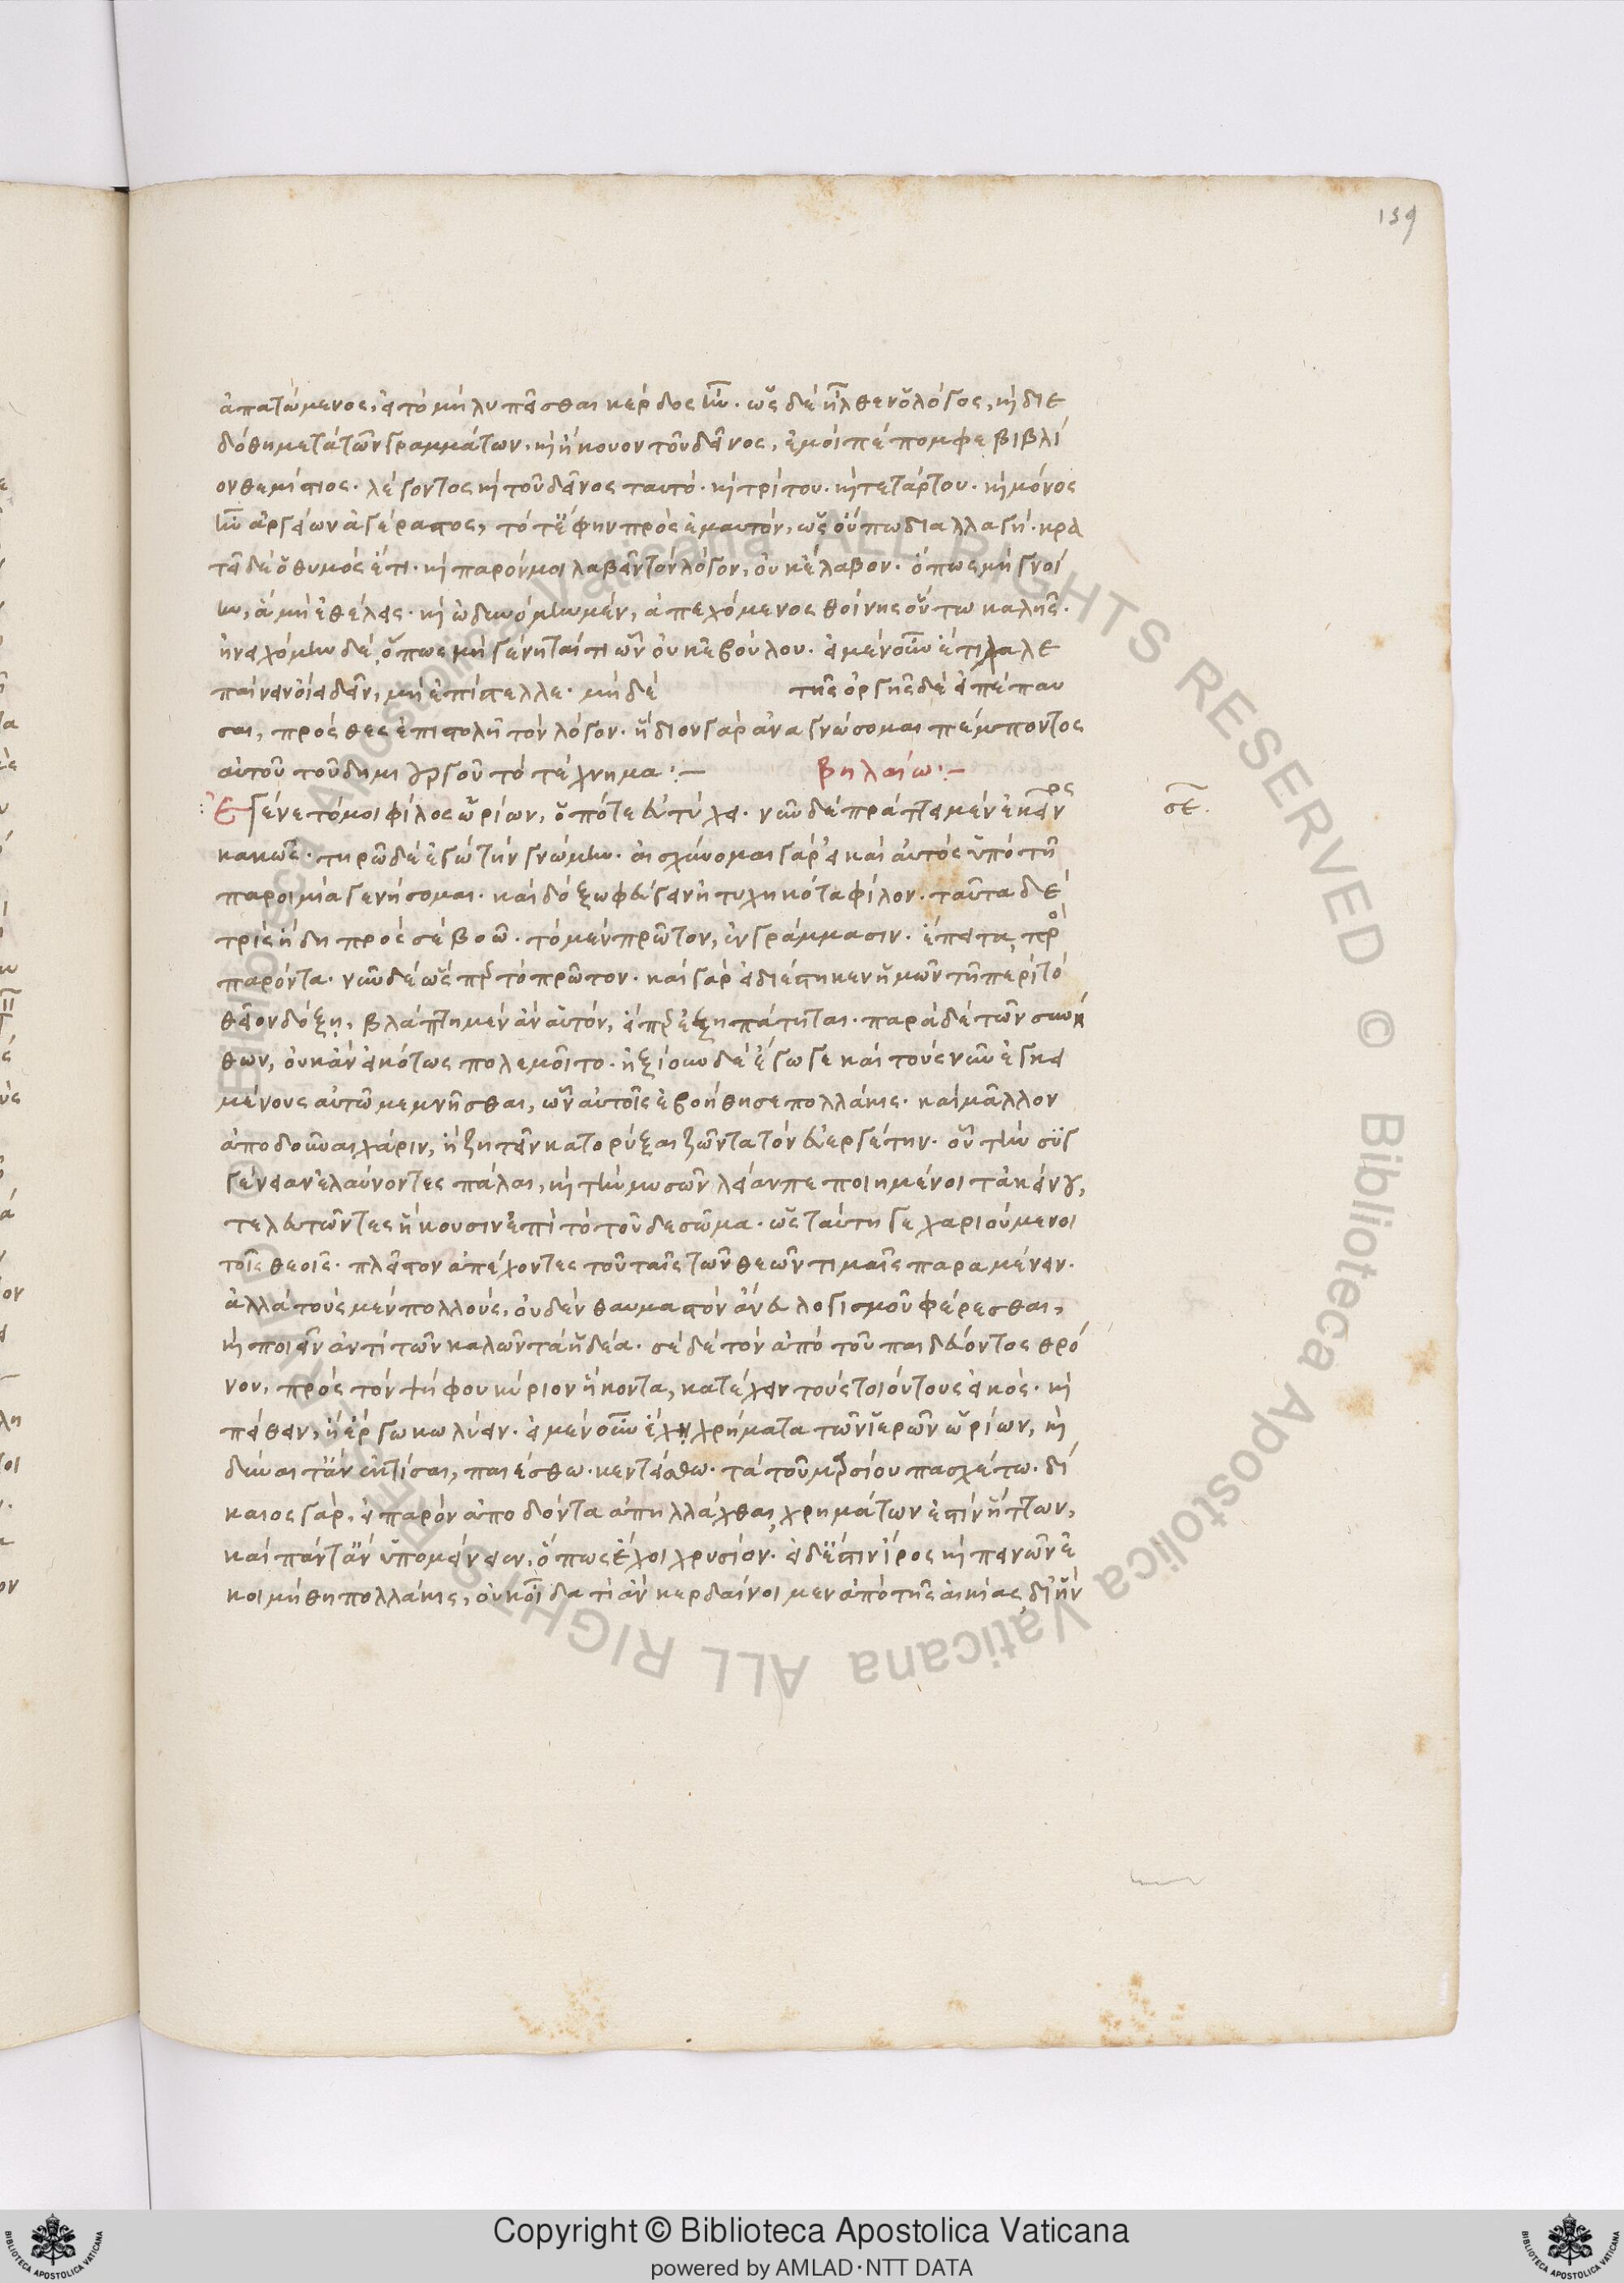 159
ἀπατώμενος, εἰ τὸ μὴ λυπεῖσθαι κέρδος ἦν. ὡς δὲ ἦλθεν ὁ λόγος, καὶ διε
δόθη μετὰ τῶν γραμμάτων. καὶ ἤκουον τοῦ δεῖνος, ἐμοὶ πέπομφε βιβλί
ον θεμίστιος. λέγοντος καὶ τοῦ δεῖνος ταυτό. καὶ τρίτου. καὶ τετάρτου. καὶ μόνος
ἦν ἀργείων ἀγέραστος, τότ' ἔφην πρὸς ἐμαυτόν, ὡς οὔπω διαλλαγή. κρα
τεῖ δὲ ὁ θυμὸς ἔτι. καὶ παρόν μοι λαβεῖν τὸν λόγον, οὐκ ἔλαβον. ὅπως μὴ γνοί
ην, ἃ μὴ ἐθέλεις. καὶ ὠδυνόμην μέν, ἀπεχόμενος θοίνης οὕτω καλῆς.
ἠνειχόμην δέ, ὅπως μὴ γένηταί τι ὧν οὐκ ἐβούλου. εἰ μὲν οὖν ἔτι χαλε
παίνειν οἴει δεῖν, μὴ ἐπίστελλε. μὴ δὲ τῆς ὀργῆς δὲ εἰ πέπαυ
σαι, πρόσθες ἐπιστολῆ τὸν λόγον. ἥδιον γὰρ ἀναγνώσομαι πέμποντος
αὐτοῦ τοῦ δημιουργοῦ τὸ τέχνημα :–
βηλαίω :–
σε.
Ἐγένετό μοι φίλος ὡρίων, ὁπότε εὐτύχει. νῦν δὲ πράττει μὲν ἐκεῖνος
κακῶς. τηρῶ δὲ ἐγὼ τὴν γνώμην. αἰσχύνομαι γὰρ εἰ καὶ αὐτὸς ὑπὸ τῆ
παροιμία γενήσομαι. καὶ δόξω φεύγειν ἠτυχηκότα φίλον. ταῦτα δὲ
τρὶς ἤδη πρὸς σὲ βοῶ. τὸ μὲν πρῶτον, ἐν γράμμασιν. ἔπειτα, πρὸ
παρόντα. νῦν δὲ ὥσπερ τὸ πρῶτον. καὶ γὰρ εἰ διέστηκεν ἡμῶν τῆ περὶ τὸ
θεῖον δόξη, βλάπτη μὲν ἂν αὐτόν, εἴπερ ἐξηπάτηται. παρὰ δὲ τῶν συνή
θων, οὐκ ἂν εἰκότως πολεμοῖτο. ἠξίουν δὲ ἔγωγε καὶ τοὺς νῦν ἐγκει
μένους αὐτῶ μεμνῆσθαι, ὧν αὐτοῖς ἐβοήθησε πολλάκις. καὶ μᾶλλον
ἀποδοῦναι χάριν, ἢ ζητεῖν κατορύξαι ζῶντα τὸν εὐεργέτην. οἳ τὴν συγ
γένειαν ἐλαύνοντες πάλαι, καὶ τὴν μυσῶν λείαν πεποιημένοι τἀκείνου,
τελευτῶντες ἥκουσιν ἐπὶ τὸ τοῦδε σῶμα. ὡς ταύτη γε χαριούμενοι
τοῖς θεοῖς. πλεῖστον ἀπέχοντες τοῦ ταῖς τῶν θεῶν τιμαῖς παραμένειν.
ἀλλὰ τοὺς μὲν πολλούς, οὐδὲν θαυμαστὸν ἄνευ λογισμοῦ φέρεσθαι,
καὶ ποιεῖν ἀντὶ τῶν καλῶν τὰ ἡδέα. σὲ δὲ τὸν ἀπὸ τοῦ παιδεύοντος θρό
νον, πρὸς τὸν ψήφου κύριον ἥκοντα, κατέχειν τοὺς τοιούτους εἰκός. καὶ
πείθειν, ἢ ἔργω κωλύειν. εἰ μὲν οὖν ἔχει χρήματα τῶν ἱερῶν ὡρίων, καὶ
δύναιτ' ἂν ἐκτίσαι, παιέσθω. κεντείσθω. τὰ τοῦ μαρσίου πασχέτω. δί
καιος γάρ. εἰ παρὸν ἀποδόντα ἀπηλλάχθαι, χρημάτων ἐστὶν ἥττων,
καὶ πάντ' ἂν ὑπομείνειεν, ὅπως ἔχοι χρυσίον. εἰ δ' ἔστιν ἶρος καὶ πεινῶν ἐ
κοιμήθη πολλάκις, οὐκ οἶδα τί ἂν κερδαίνοιμεν ἀπὸ τῆς αἰκίας, δι' ἣν
Copyright © Biblioteca Apostolica Vaticana
powered by AMLAD·NTT DATA